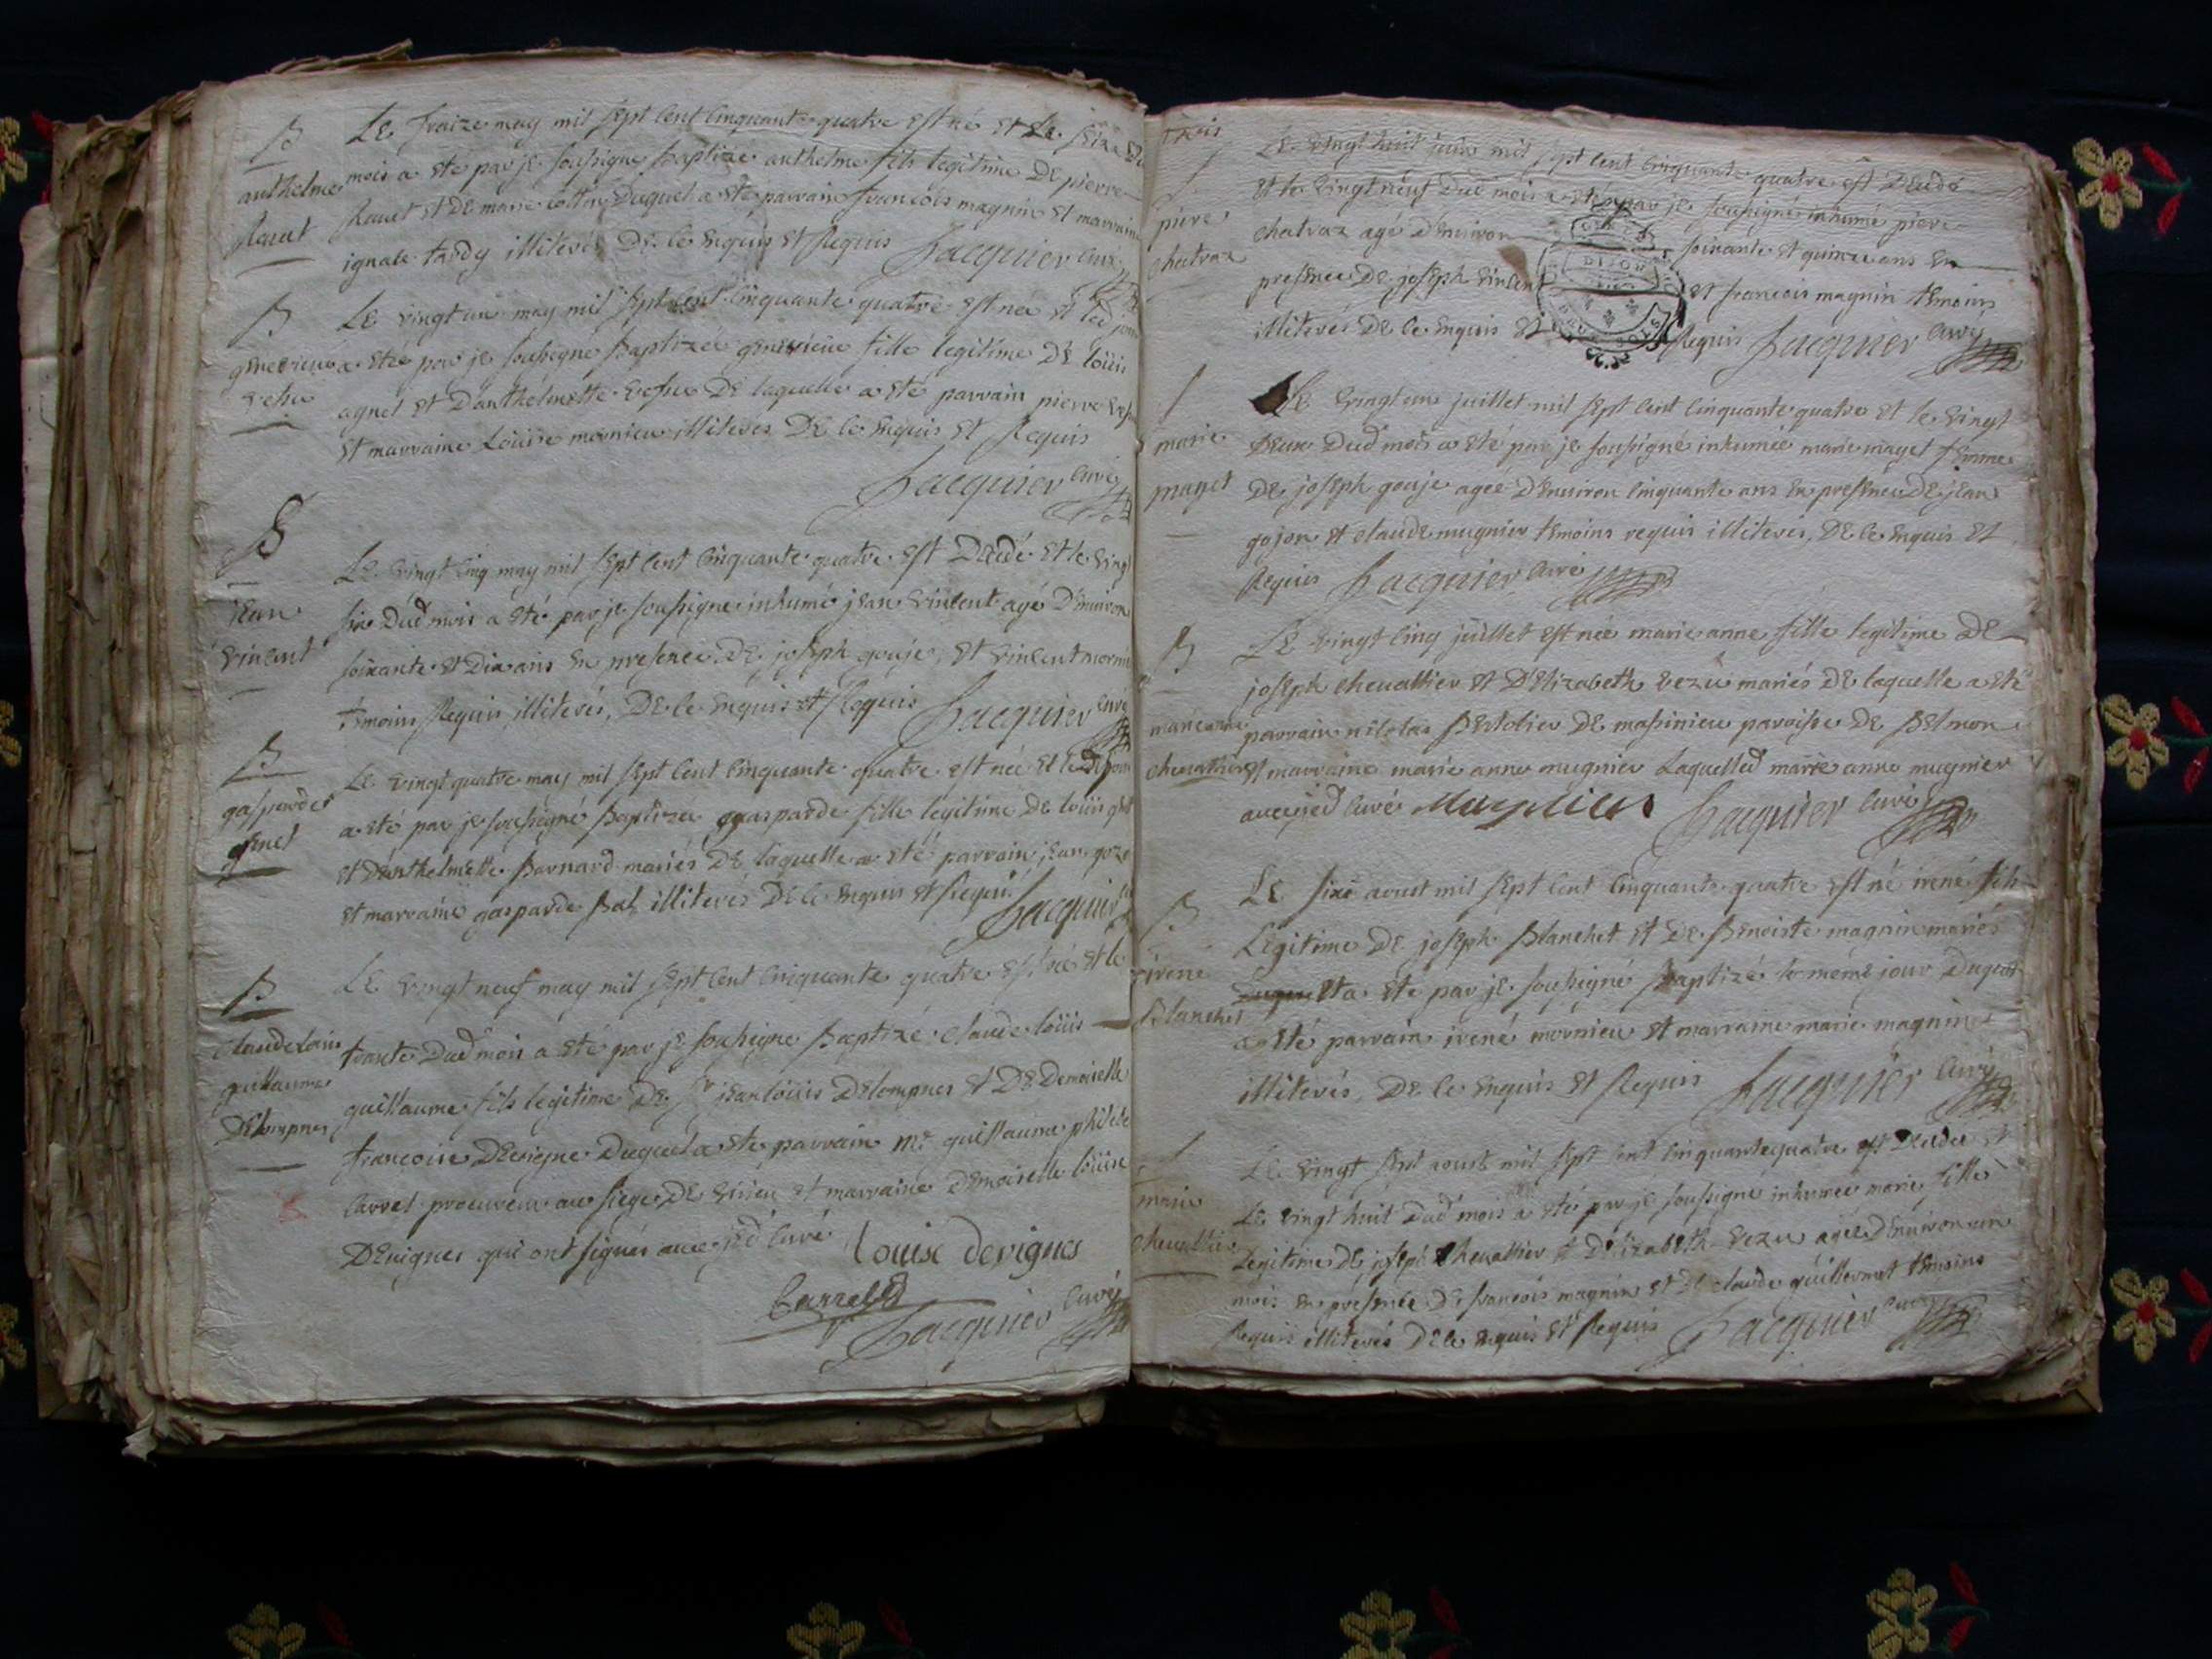 B
anthelme
Ravet
Le traize may mil sept cent cinquante quatre est né et le seize du
mois a été par je soussigne baptize anthelme fils legitime de pierre
Ravet et de marie cottin duquel a ete parrain francois magnin et marraine
ignace tardy illiterés de ce enquis et Requis Jacquier curé
B
genevieve
vesu
Le vingt un may mil sept cent cinquante quatre est nee et led jour
a eté par je soussigne baptizée genevieve fille legitime de loüis
agnel et d'anthelmette vesu de laquelle a eté parrain pierre
et marraine Loüise mornieu illiteres de ce enquis et Requis
Jacquier curé
S
jean
vincent
Le vingt cinq may mil sept cent cinquante quatre est decedé et le vingt
six dud mois a eté par je soussigne inhumé jean vincent agé d'environ
soixante et dix ans en presence de joseph gouje, et vincent
temoins Requis illiterés, de ce enquis et Requis Jacquier curé
B
gasparde
genet
Le vingt quatre may mil sept cent cinquante quatre est née et led jour
a eté par je soussigné baptizée gasparde fille legitime de loüis
et d'anthelmette Barnard mariés de laquelle a eté parrain jean
et marraine gasparde Bal illiterés de ce enquis et Requis Jacquier
B
claude loüis
guillaume
Delompnes
Le vingt neuf may mil sept cent cinquante quatre est né et le
trante dud mois a eté par je soussigne baptizé claude loüis
guillaume fils legitime de Sr jean loüis Delompnes et de Demoiselle
francoise Devigne duquel a ete parrain Me guillaume
Carrel procureur au siege de virieu et marraine demoiselle loüise
Devignes qui ont signés avec je d curé Louise devignes
Carrel
Jacquier curé
S
pierre
chatraz
Le vingt huit juin mil sept cent cinquante quatre est decedé
et le vingt neuf dud mois a eté par je soussigné inhumé pierre
chatraz agé d'environ soixante et quinze ans en
presence de joseph vincent et francois magnin temoins
illiterés de ce enquis et Requis Jacquier curé
S
marie
mayet
Le vingt un juillet mil sept cent cinquante quatre et le vingt
deux dud mois a eté par je soussigné inhumée marie mayet femme
de joseph gouje agee d'environ cinquante ans en presence de jean
gojon et claude mugnier temoins requis illiterés, de ce enquis et
Requis Jacquier curé
B
marie anne
chevallier
Le vingt cinq juillet est née marie anne fille legitime de
joseph chevallier et d'Elizabeth vezu mariés de laquelle a eté
parrain nicolas Bertolier de massinieu paroisse de Belmon
et marraine marie anne mugnier Laquelled marie anne mugnier
avec je d curé Mugnier Jacquier curé
B
irené
Blanchet
Le sixe aoust mil sept cent cinquante quatre est né irené fils
Legitime de joseph Blanchet et de Benoiste magnin mariés
et a eté par je soussigné baptizé le même jour duquel
a eté parrain irené mornieu et marraine marie magnin
illiterés, de ce enquis et Requis Jacquier curé
S
marie
chevallier
Le vingt sept aoust mil sept cent cinquante quatre est decedee et
Le vingt huit dud mois a eté par je soussigne inhumee marie fille
Legitime de joseph chevallier et d'Elizabeth vezu agee d'environ un
mois en presence de francois magnin et de claude guillermet temoins
Requis illiterés de ce enquis et Requis Jacquier curé